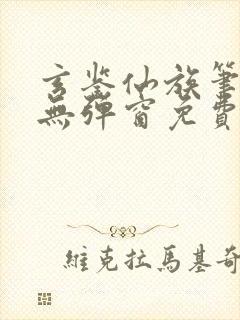 玄鉴仙族筆
無彈窗免費
維克拉馬基奇